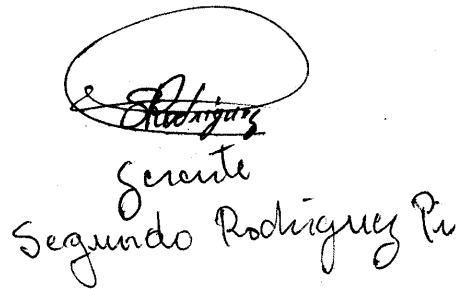 SRodriguez
Gerente
Segundo Rodriguez